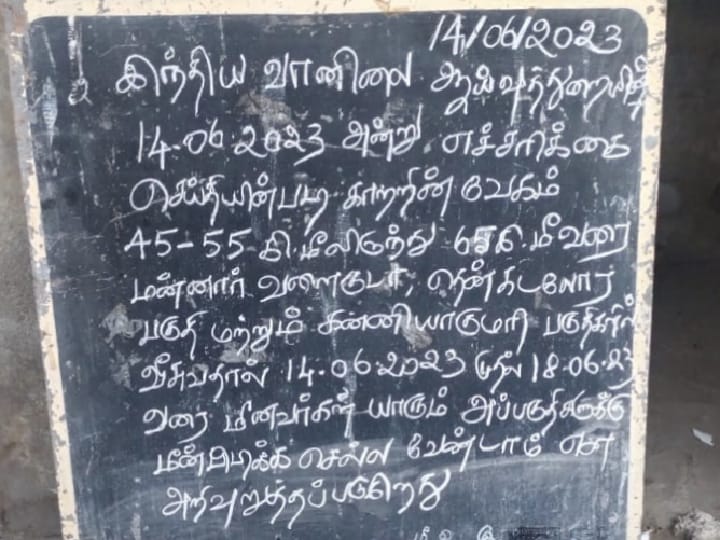 14/06/2023
இந்திய வானிலை ஆய்வுத்துறையின்
14.06.2023 அன்று எச்சரிக்கை
செய்தியின்படி காற்றின் வேகம்
45-55 கி.மீலிருந்து 65கி.மீவரை
மன்னார் வளைகுடா, தென்கடலோர
பகுதி மற்றும் கன்னியாகுமரி பகுதிகளில்
வீசுவதால் 14.06.2023 முதல் 18.06.23
வரை மீனவர்கள் யாரும் அப்பகுதிகளுக்கு
மீன்பிடிக்க செல்ல வேண்டாம் என
அறிவுறுத்தப்படுகிறது